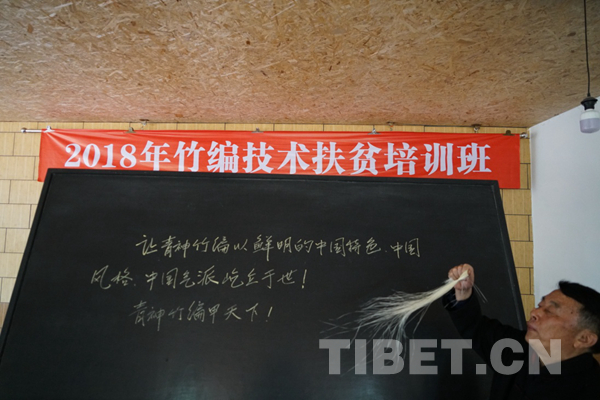 2018年竹编技术扶贫培训班
让青神竹编以鲜明的中国特色、中国
风格、中国气派屹立于世！
青神竹编甲天下！
TIBET.CN